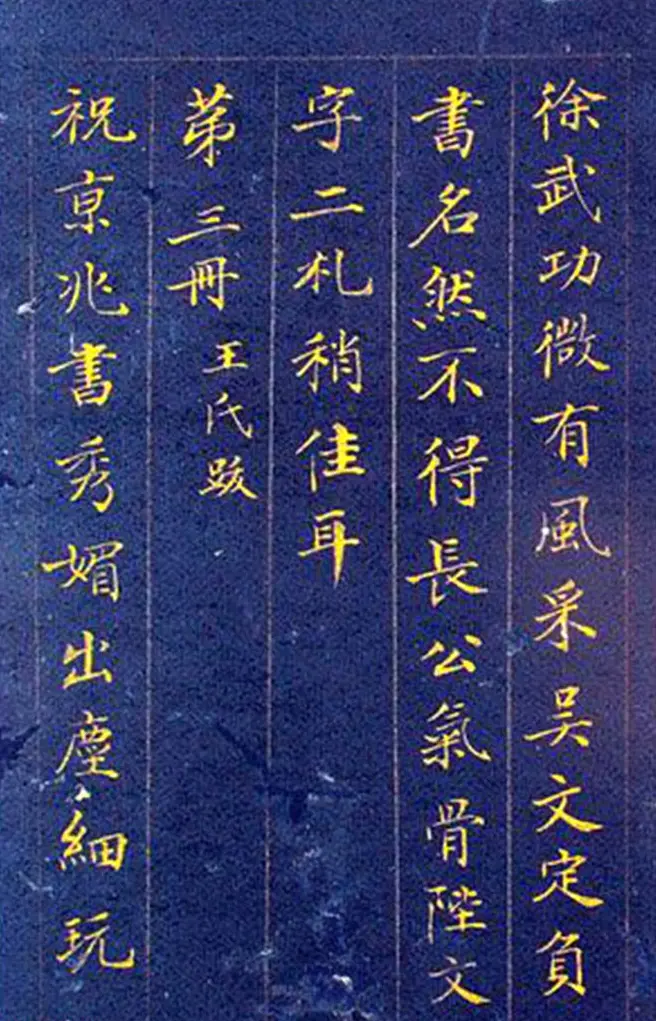 徐武功微有風采吳文定負
書名然不得長公氣骨陛文
字二札稍佳耳
第三冊 王氏跋
祝京兆書秀媚出塵細玩